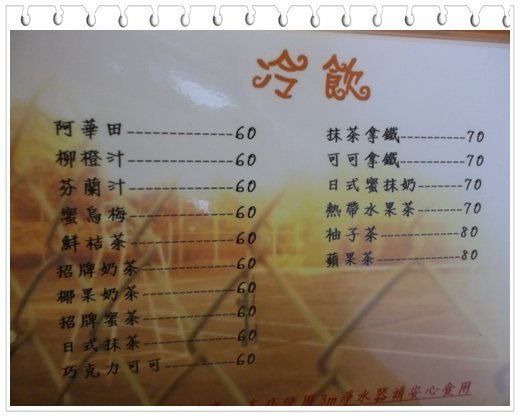 冷飲
阿華田------------60
柳橙汁------------60
芬蘭汁------------60
蜜烏梅------------60
鮮桔茶------------60
招牌奶茶----------60
椰果奶茶----------60
招牌蜜茶----------60
日式抹茶----------60
巧克力可可--------60
抹茶拿鐵---------70
可可拿鐵---------70
日式蜜抹奶-------70
熱帶水果茶-------70
柚子茶-----------80
蘋果茶-----------80
本店使用3m淨水器請安心食用